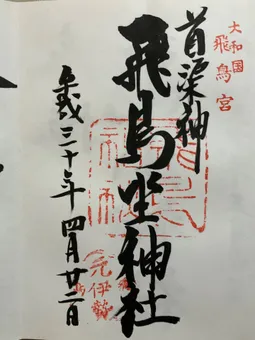 大和国
飛鳥宮
首渠神
飛鳥坐神社
平成三十年四月廿二日
元伊勢